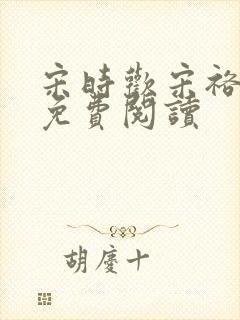 宋時歡宋裕
免費閱讀
胡慶十